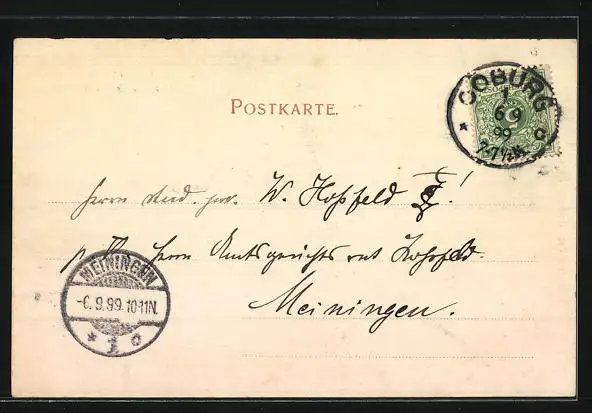 POSTKARTE.
COBURG
1
6 9
99
7-7½N.
c
5
Herrn stud. jur. W. Hoßfeld
Herrn Amtsgerichtsrat Hoßfeld.
Meiningen.
MEININGEN
-6.9.99.10-11N.
* 1 c